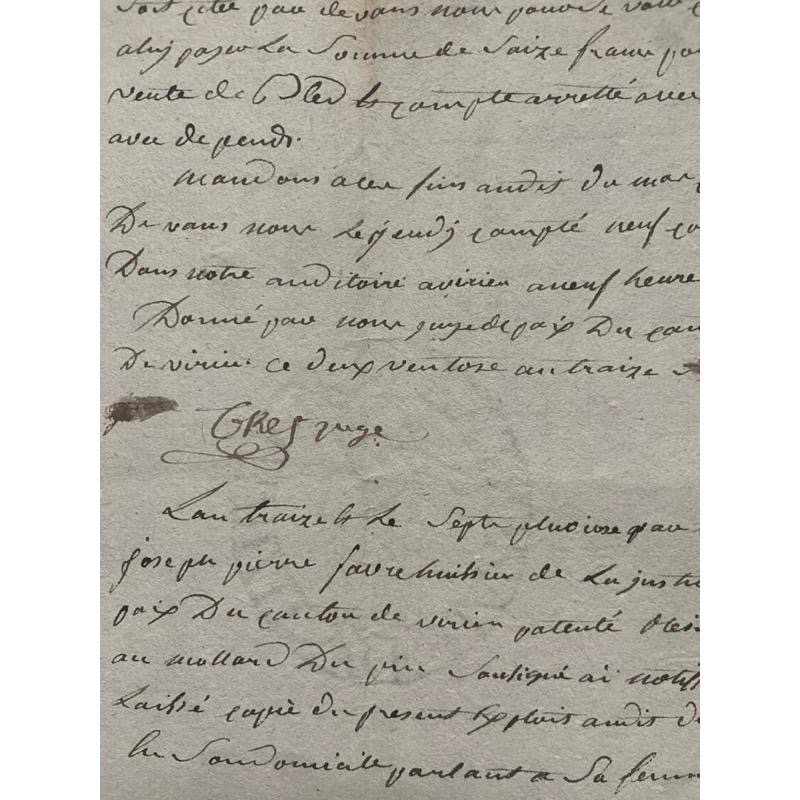 Soit cité par devans nous pour se voir
a luy payer La Somme de Saize franc po
vente de Bled & compte arretté avec
avec depends.
Mandons a ces fins audit du mar
De vans nous Le jeudj compté neuf co
Dans notre auditoire a virieu a neuf heure
Donné par nous juge de paix Du can
De virieu ce deux ventose an traize
GRES juge
Lan traize & Le Sept pluviose par
joseph pierre favre huissier de La justi
paix Du canton de virieu patenté Resi
au mollard Du pin Soussigné ai notiff
Laissé copie du present Exploit audit d
en Son domicile parlant a Sa femm